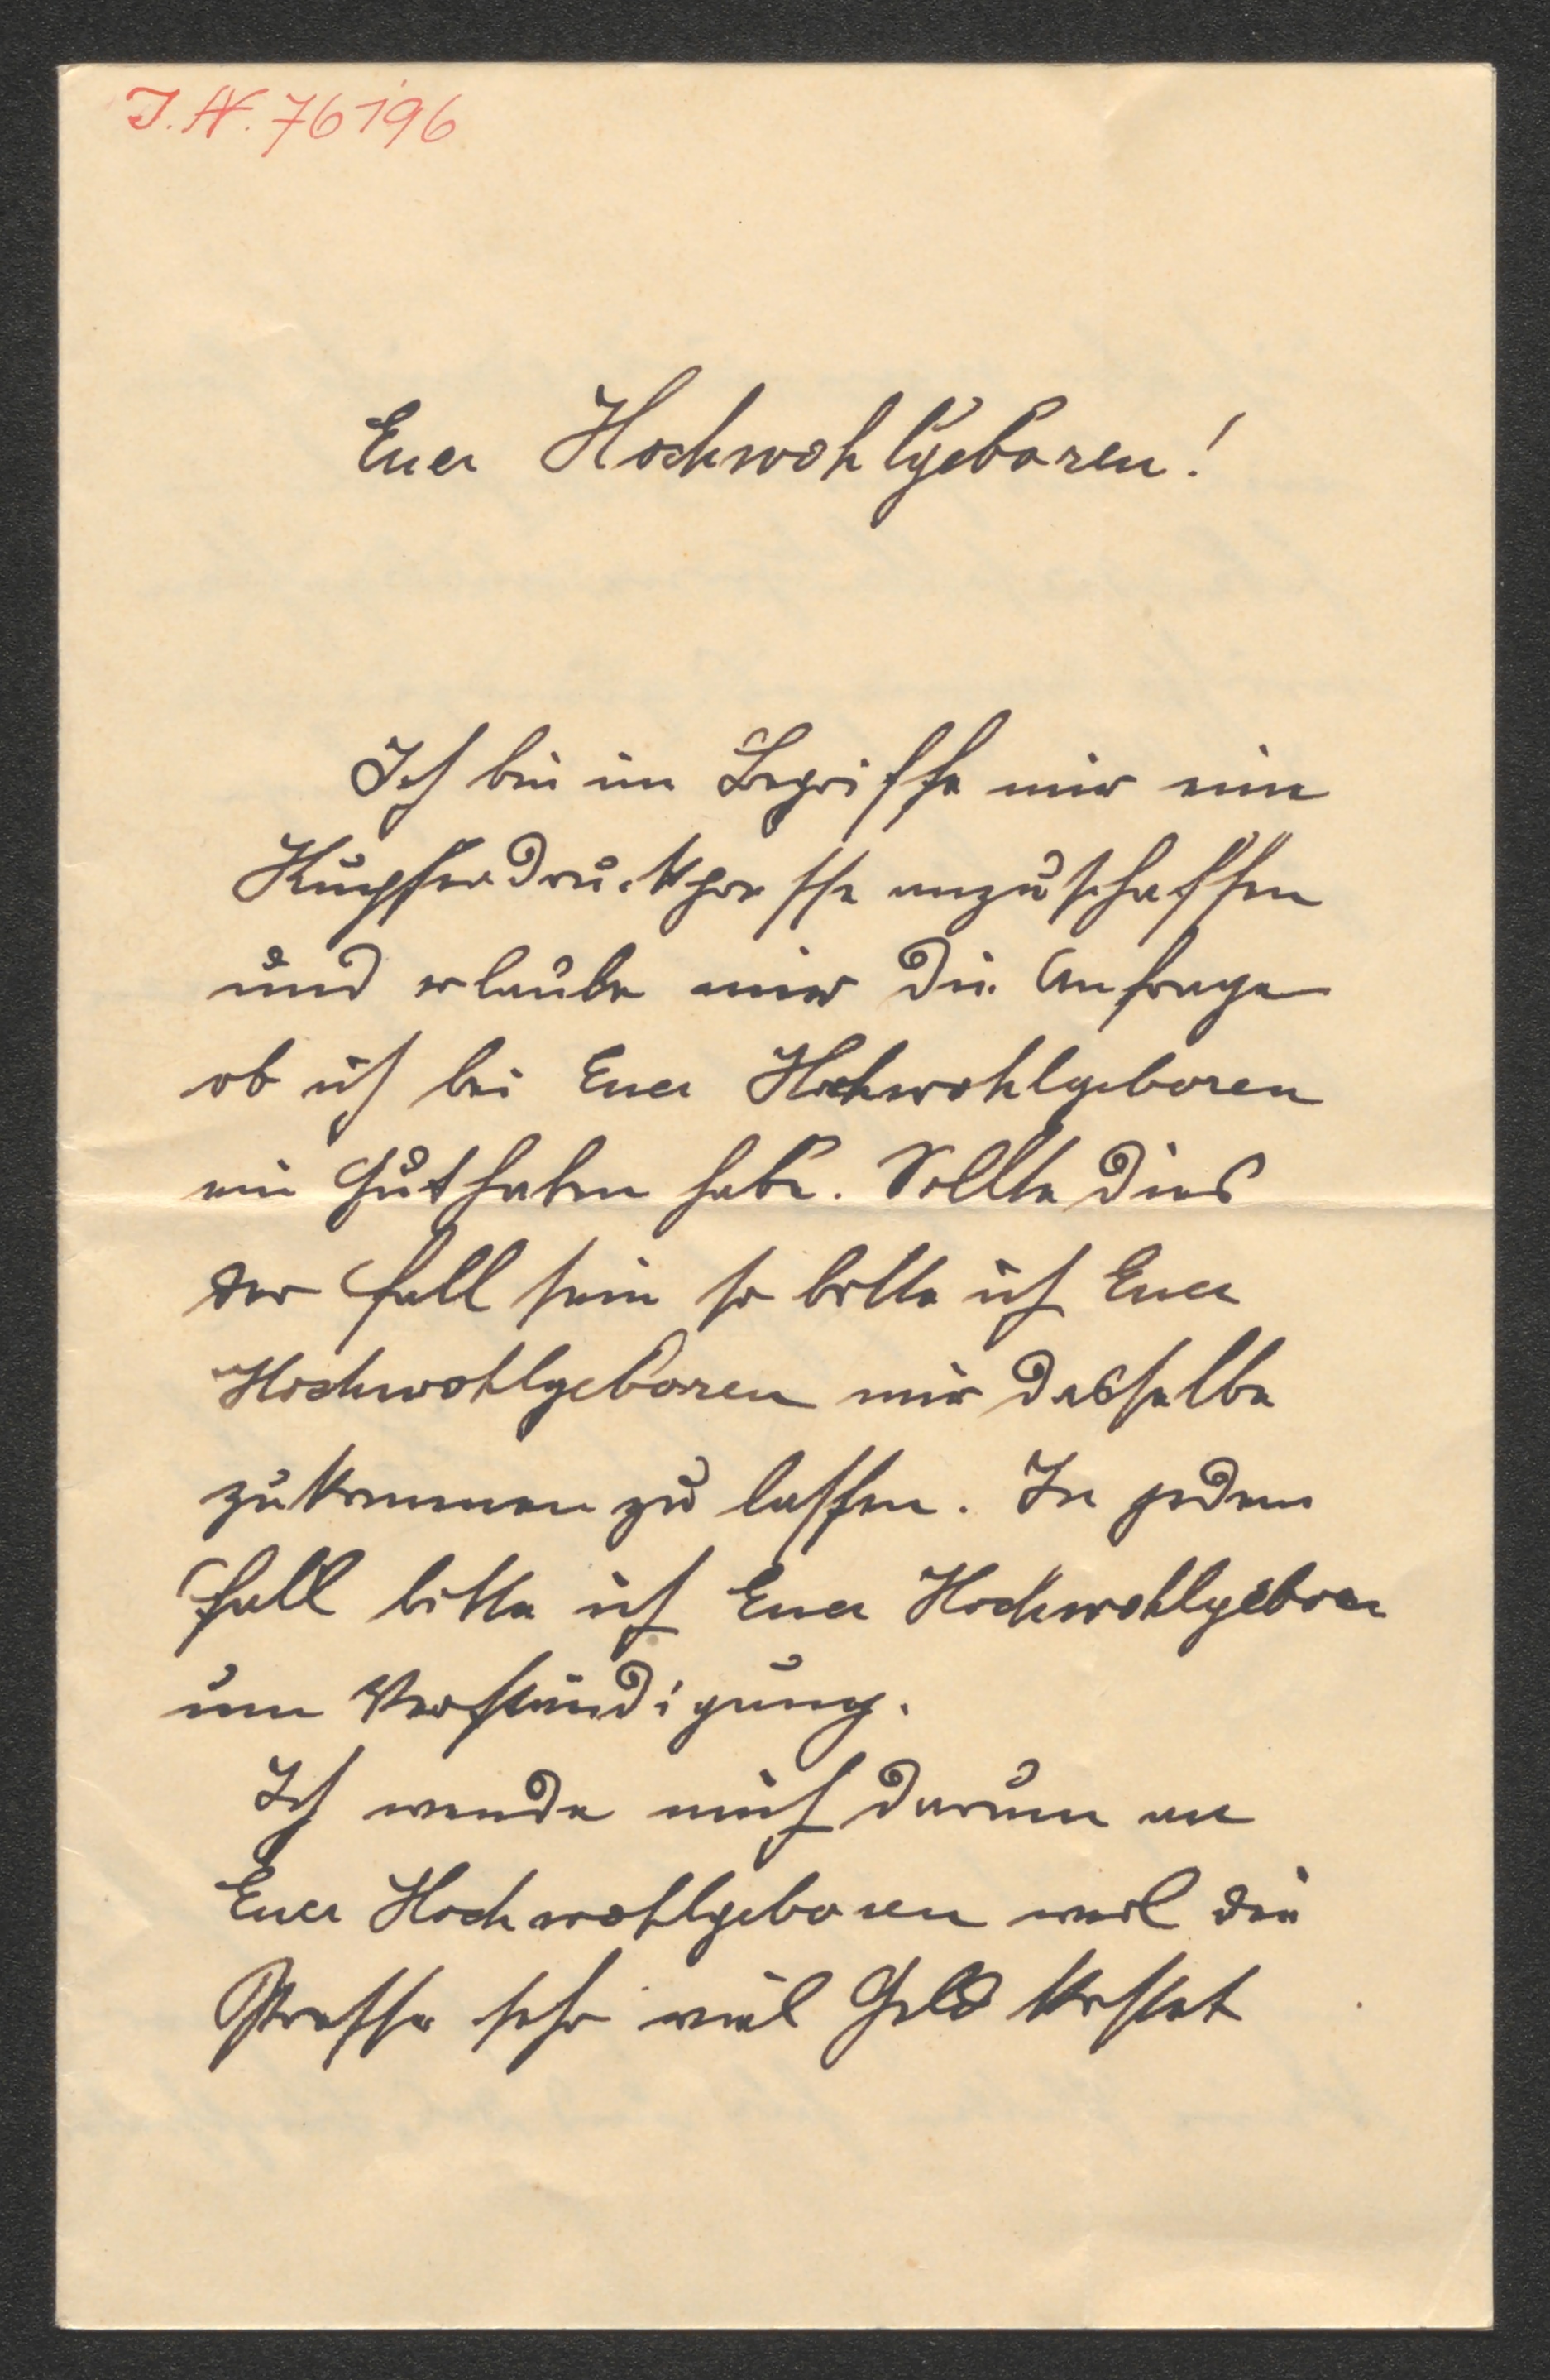 J.N. 76196
Euer Hochwohlgeboren!
Ich bin im Begriffe mir eine
Kupferdruckpresse anzuschaffen
und erlaube mir die Anfrage
ob ich bei Euer Hochwohlgeboren
ein Guthaben habe. Sollte dies
der Fall sein so bitte ich Euer
Hochwohlgeboren mir dasselbe
zukommen zu lassen. In jedem
Fall bitte ich Euer Hochwohlgeboren
um Verständigung.
Ich wende mich darum an
Euer Hochwohlgeboren weil die
Presse sehr viel Geld kostet